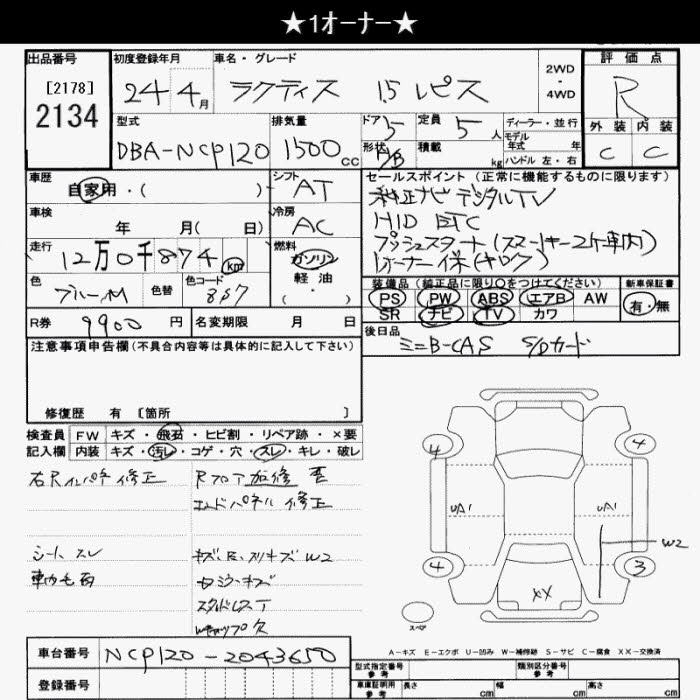 ★1オーナー★
出品番号 初度登録年月 車名・グレード 2WD・4WD 評価点
[2178]
2134
24 4月 ラクティス 1.5 レピス R
型式 排気量 ドア 5 定員 5人 ディーラー・並行 外装 内装
DBA-NCP120 1500cc 形状 H/B 積載 kg モデル年式 年 ハンドル 左・右 C C
車歴 自家用・( ) シフト AT セールスポイント (正常に機能するものに限ります)
純正ナビ デジタルTV
車検 年 月( 日) 冷房 AC HID ETC
プッシュスタート(スマートキー2ケ車内)
走行 12万0千874km 燃料 ガソリン 軽油・( ) オーナー 保(キロク)
色 ブルーM 色替 色コード 8S7
装備品 (純正品に限り○をつけてください) 新車保証書
PS PW ABS エアB AW 有・無
SR ナビ TV カワ
R券 9900円 名変期限 月 日
後日品 ミニB-CAS S/Dカード
注意事項申告欄(不具合内容等は具体的に記入して下さい)
修復歴 有 [箇所 ]
検査員 FW キズ・飛石・ヒビ割・リペア跡・×要
記入欄 内装 キズ・汚レ・コゲ・穴・スレ・キレ・破レ
右Rインパネ修正 Rフロア加修
エンドパネル修正
シートスレ キズ、E、スリキズW2
スタッドレスT
4 4
UA1 UA1
W2
4 3
XX
スペア
A-キズ E-エクボ U-凹み W-補修跡 S-サビ C-腐食 XX-交換済
車台番号 NCP120-2043650
登録番号
型式指定番号 参考 類別区分番号 参考
車庫証明用 参考 長さ cm 幅 cm 高さ cm